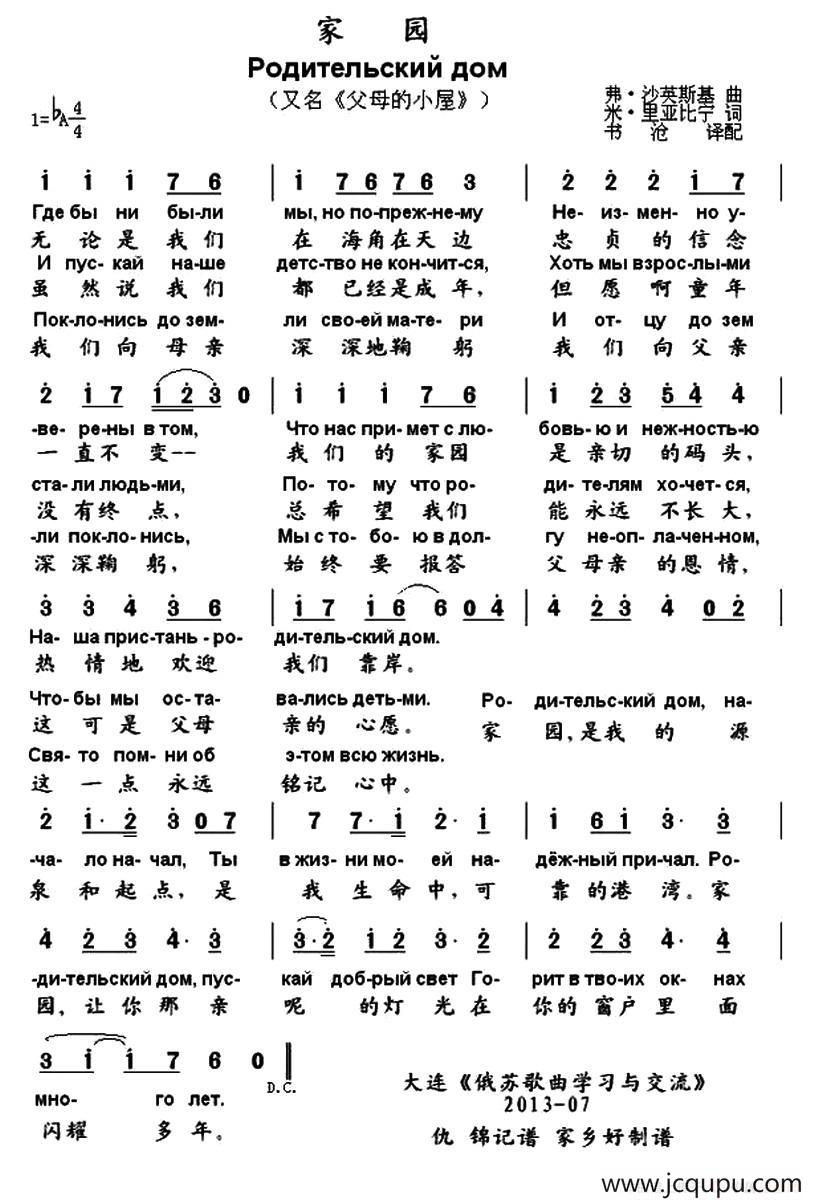 家 园
Родительский дом
（又名《父母的小屋》）
弗·沙英斯基 曲
米·里亚比宁 词
书 沧 译配
1=♭A 4/4
i i i 7 6 | i 7 6 7 6 3 | 2 2 2 i 7 |
Где бы ни бы-ли мы, но по-преж-не-му Не- из- мен- но у-
无 论 是 我 们 在 海 角 在 天 边 忠 贞 的 信 念
И пус-кай на-ше детс-тво не кон-чит-ся, Хоть мы взрос-лы-ми
虽 然 说 我 们 都 已 经 是 成 年， 但 愿 啊 童 年
Пок-ло-нись до зем- ли сво-ей ма-те-ри И от-цу до зем
我 们 向 母 亲 深 深 地 鞠 躬 我 们 向 父 亲
2 i 7 i 2 3 0 | i i i 7 6 | i 2 3 5 4 4 |
-ве- ре-ны в том, Что нас при-мет с лю- бовь-ю и неж-ность-ю
一 直 不 变-- 我 们 的 家 园 是 亲 切 的 码 头，
ста-ли людь-ми, По- то- му что ро- ди- те-лям хо-чет-ся,
没 有 终 点， 总 希 望 我 们 能 永 远 不 长 大，
-ли пок-ло-нись, Мы с то- бо-ю в дол- гу не-оп-ла-чен-ном,
深 深 鞠 躬， 始 终 要 报 答 父 母 亲 的 恩 情，
3 3 4 3 6 | i 7 i 6 6 0 4 | 4 2 3 4 0 2 |
На- ша прис-тань - ро- ди-тель-ский дом.
热 情 地 欢 迎 我 们 靠 岸。
Что-бы мы ос-та- ва-лись деть-ми. Ро- ди-тельс-кий дом, на-
这 可 是 父 母 亲 的 心 愿。 家 园，是 我 的 源
Свя-то пом-ни об э-том всю жизнь.
这 一 点 永 远 铭 记 心 中。
2 i· 2 3 0 7 | 7 7· i 2· i | i 6 i 3· 3 |
-ча- ло на-чал, Ты в жиз-ни мо- ей на- дёж-ный при-чал. Ро-
泉 和 起 点，是 我 生 命 中，可 靠 的 港 湾。家
4 2 3 4· 3 | 3·2 i 2 3· 2 | 2 2 3 4· 4 |
-ди-тельский дом, пус- кай доб-рый свет Го- рит в тво-их ок- нах
园，让 你 那 亲 昵 的 灯 光 在 你 的 窗 户 里 面
3 i i 7 6 0 ‖
D.C.
мно- го лет.
闪 耀 多 年。
大连《俄苏歌曲学习与交流》
2013-07
仇 锦记谱 家乡好制谱
www.jcqupu.com